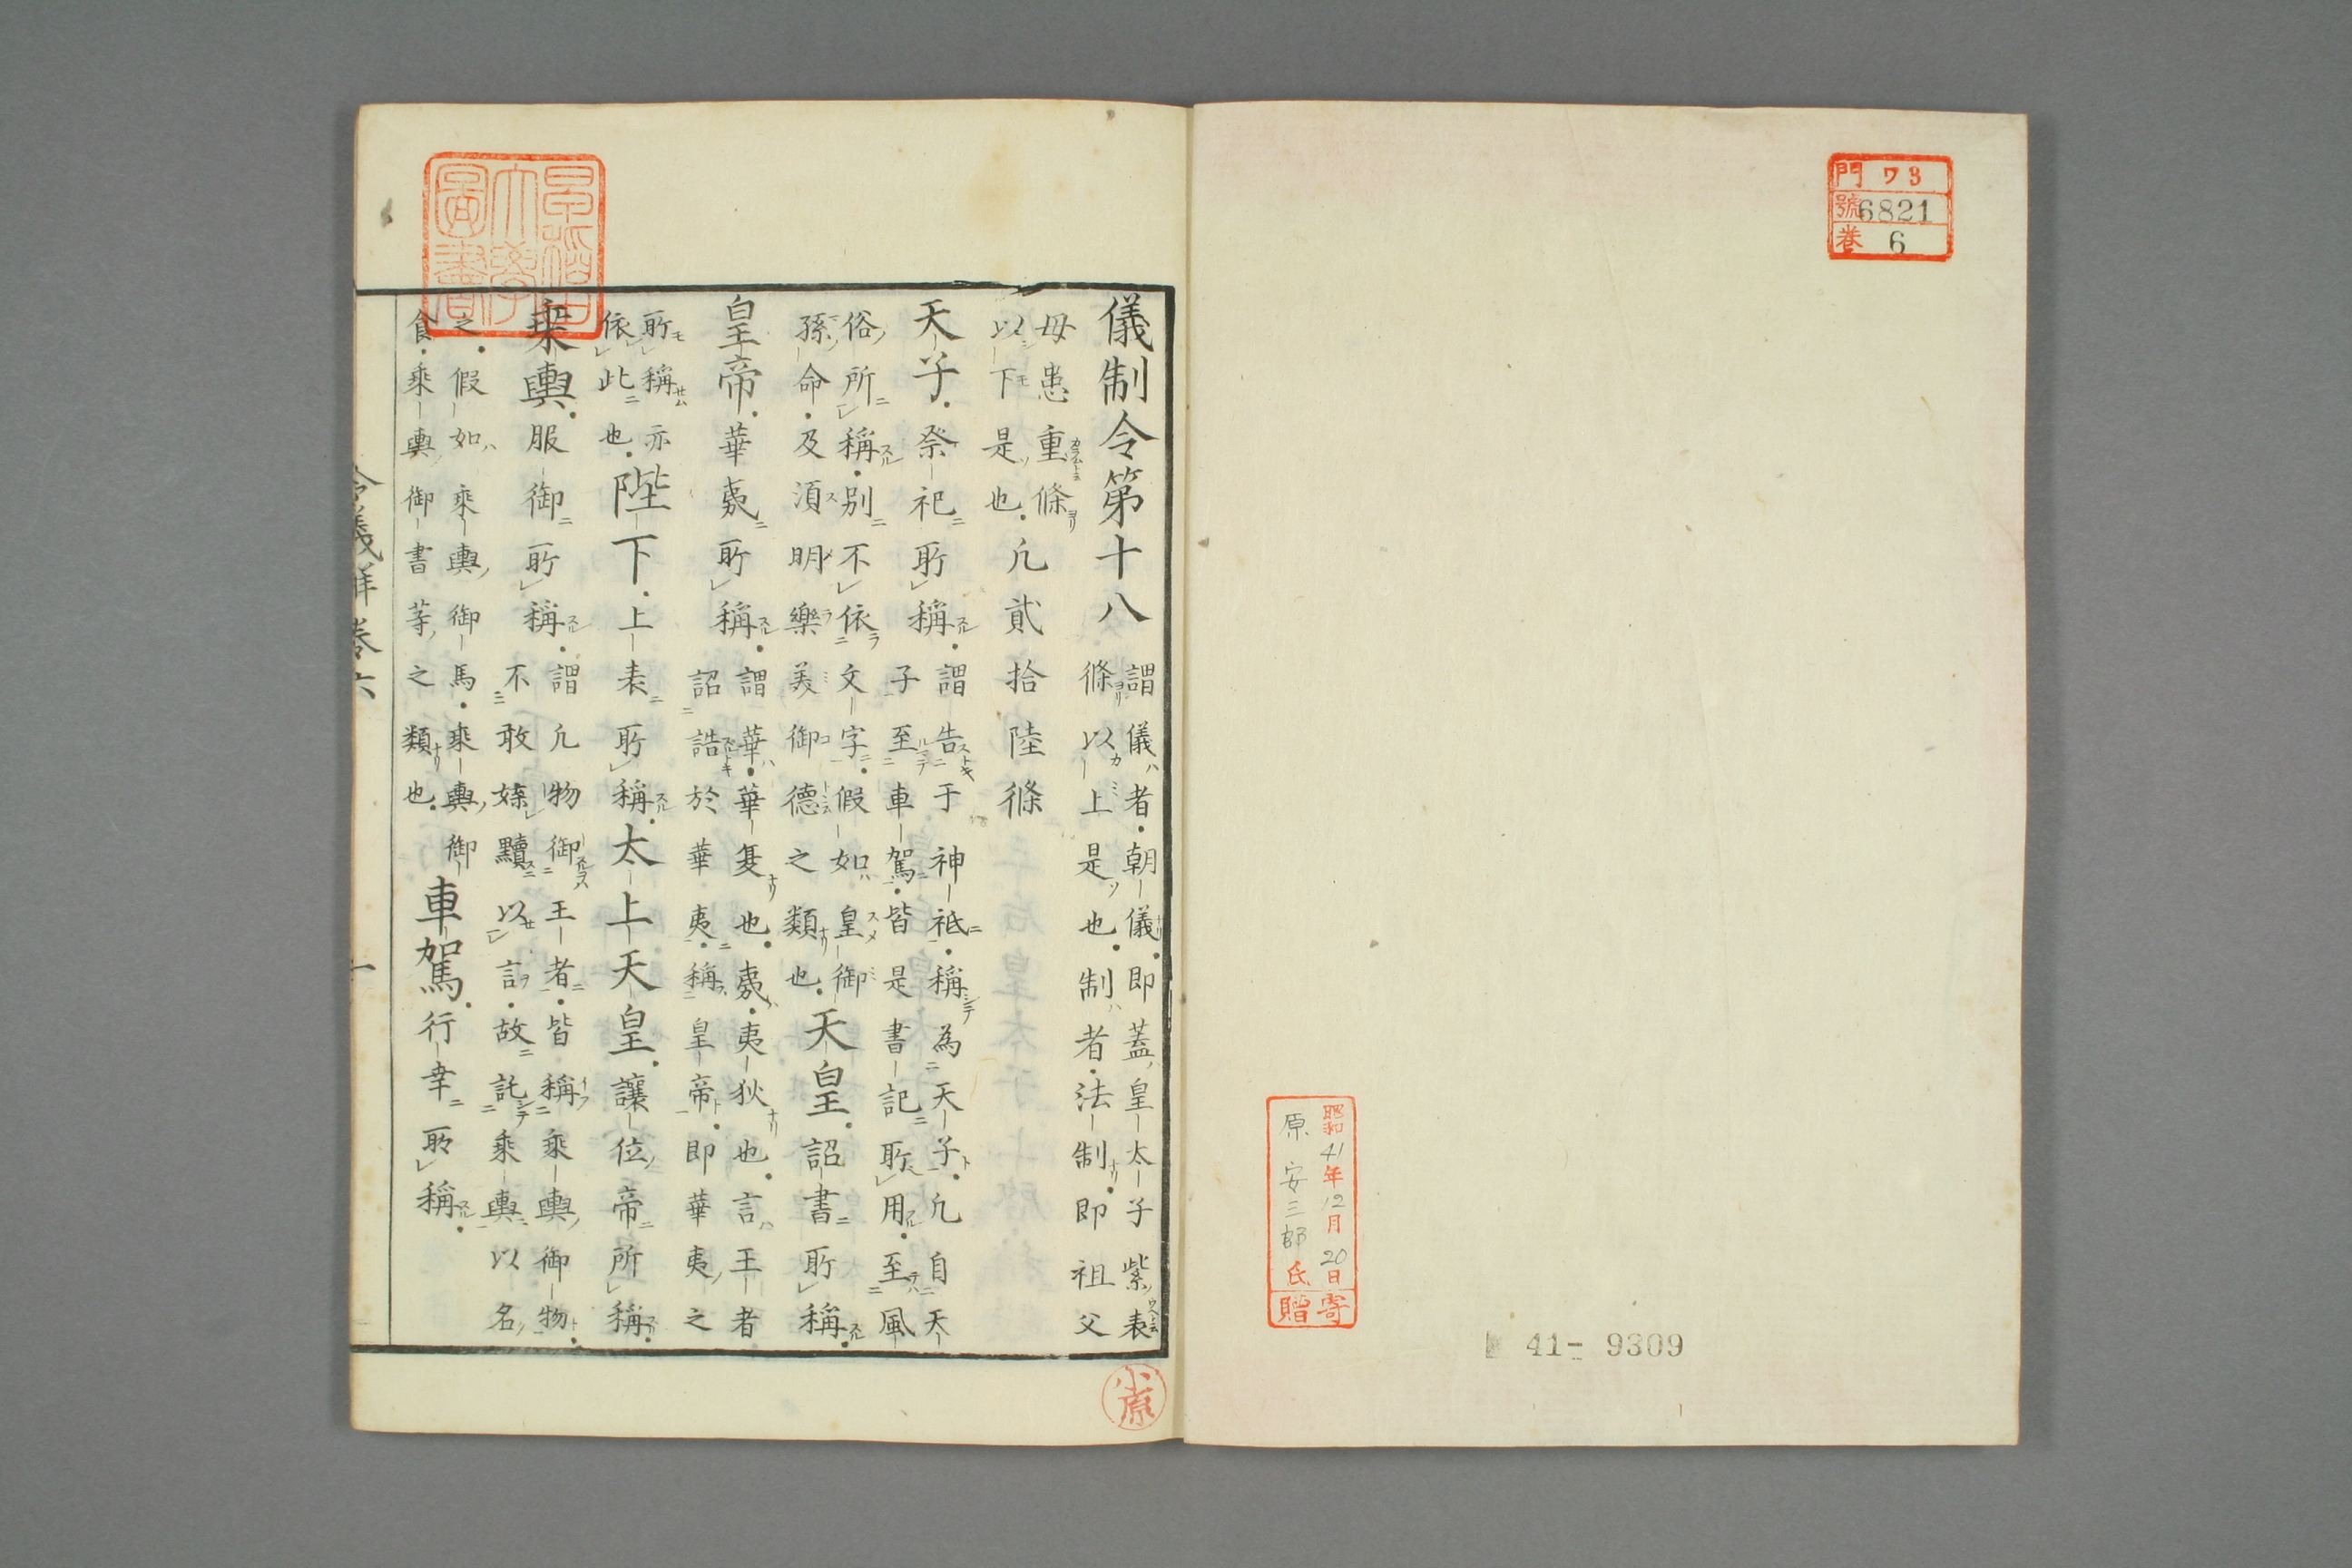 門 ワ3
號 6821
巻 6
昭和41年12月20日
原安三郎氏
寄贈
41- 9309
儀制令第十八
謂儀者朝儀即蓋皇太子紫表
條以上是也制者法制即祖父
母患重條
以下是也
凢貳拾陸條
天子祭祀所稱
謂告于神祇稱為天子凢自天
子至車駕皆是書記所用至風
俗所稱別不依文字假如皇御
孫命及湏明樂美御德之類也
天皇詔書所稱
皇帝華夷所稱
謂華華夏也夷夷狄也言王者
詔誥於華夷稱皇帝即華夷之
所稱亦
依此也
陛下上表所稱太上天皇讓位帝所稱
乘輿服御所稱
謂凢物御王者皆稱乘輿御物
不敢媟黷以言故託乘輿以名
之假如乘輿御馬乘輿御
食乘輿御書等之類也
車駕行幸所稱
令義解卷六
一
早稲田大學圖書
小原